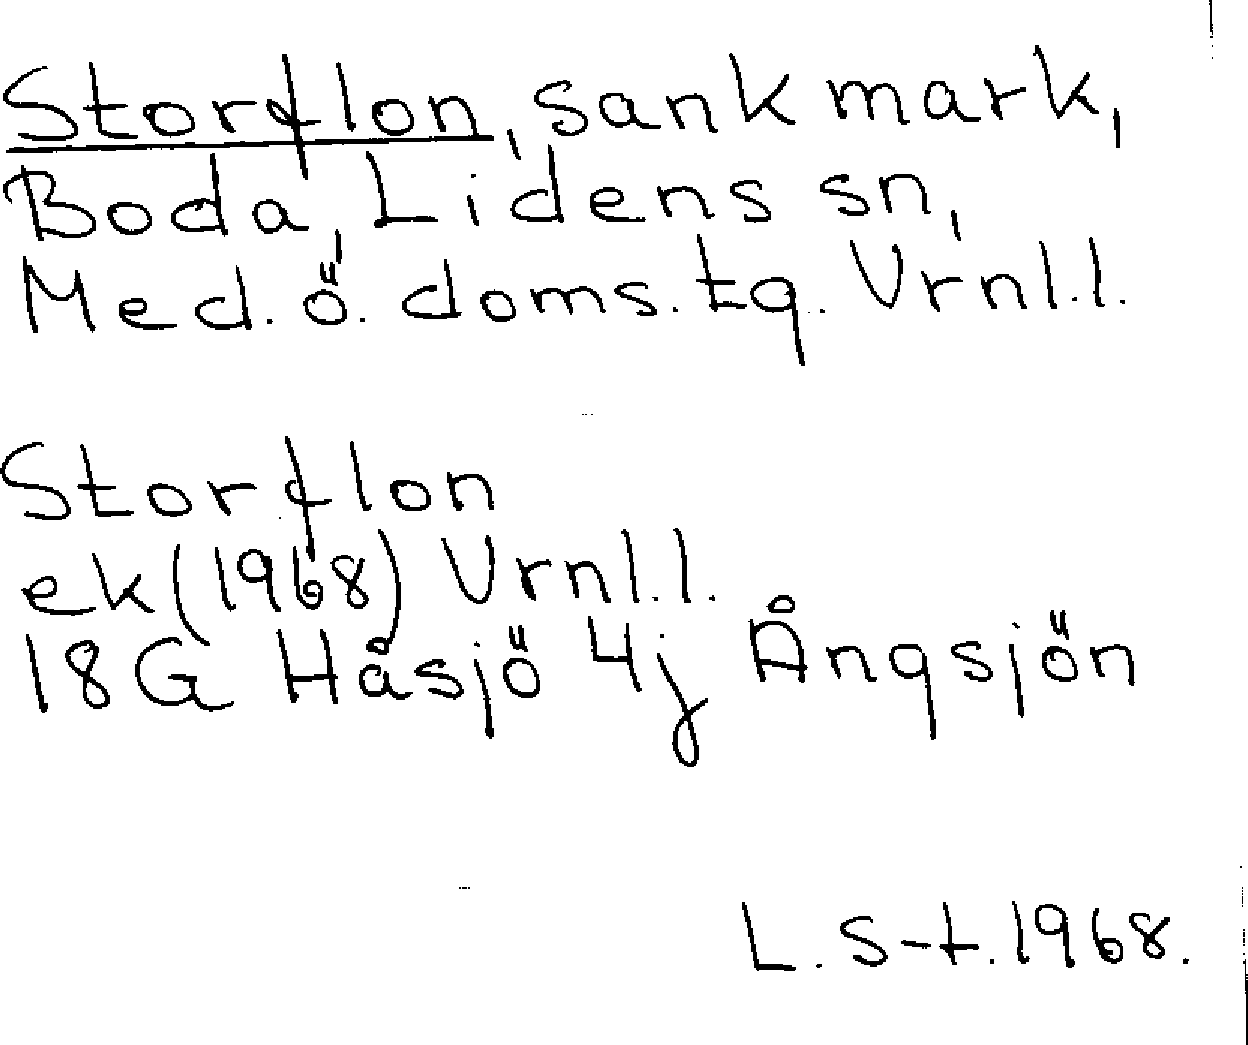 Storflon, sank mark,
Boda, Lidens sn,
Med. ö. doms. tg. Vrnl.l.
Storflon
ek (1968) Vrnl.l.
18G Håsjö 4j Ångsjön
L. S-t. 1968.